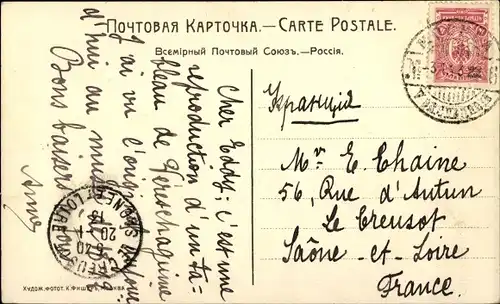 Почтовая Карточка.—Carte Postale.
Всемірный Почтовый Союзъ.—Россія.
Cher Eddy; c'est une
reproduction d'un ta-
bleau de Verestchaguine
J'ai vu l'original
d'hui au musée
Bons baisers
Франція
Mr E. Chaine
56, Rue d'Autun
Le Creusot
Saône-et-Loire
France.
LE CREUSOT
SAONE ET LOIRE
20 - 1
13
Худож. фотот. К. Фишеръ, Москва